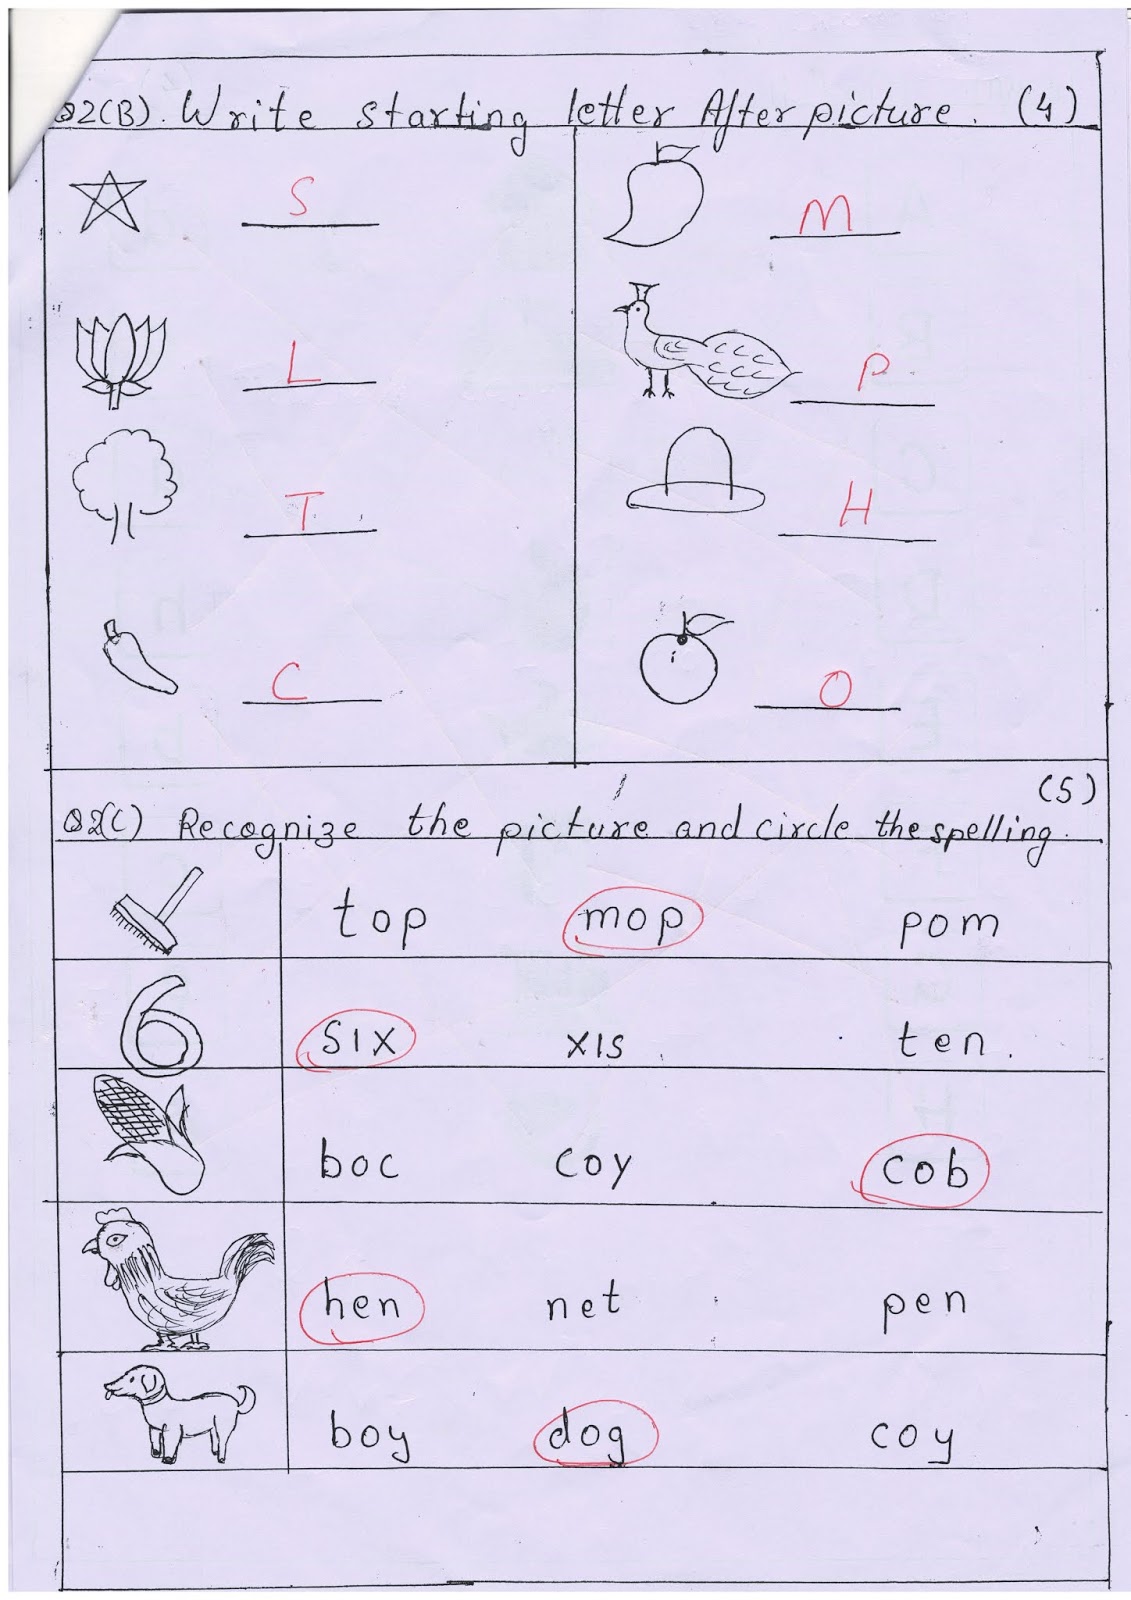 Q2(B). Write starting letter After picture. (4)
S M
L P
T H
C O
(5)
Q2(C) Recognize the picture and circle the spelling.
top mop pom
6 six xis ten.
boc coy cob
hen net pen
boy dog coy